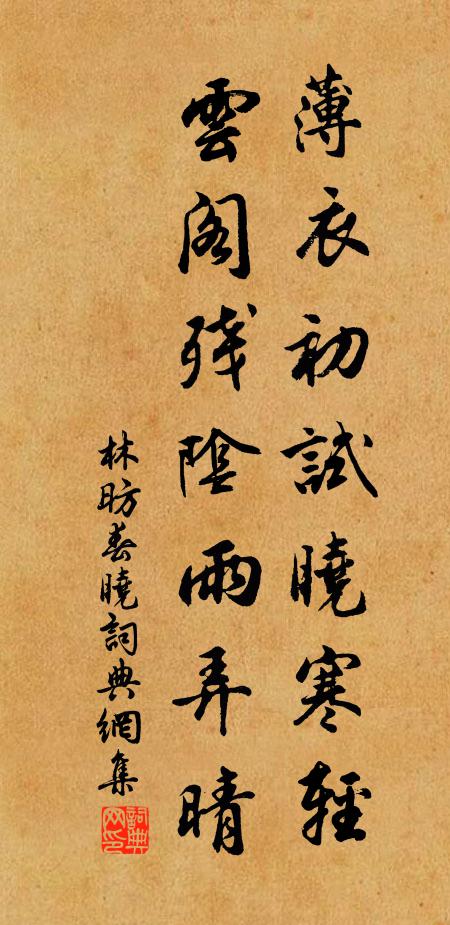 薄衣初試曉寒輕
雲閣殘陰雨弄晴
林昉春曉詞典網集
詞典網印